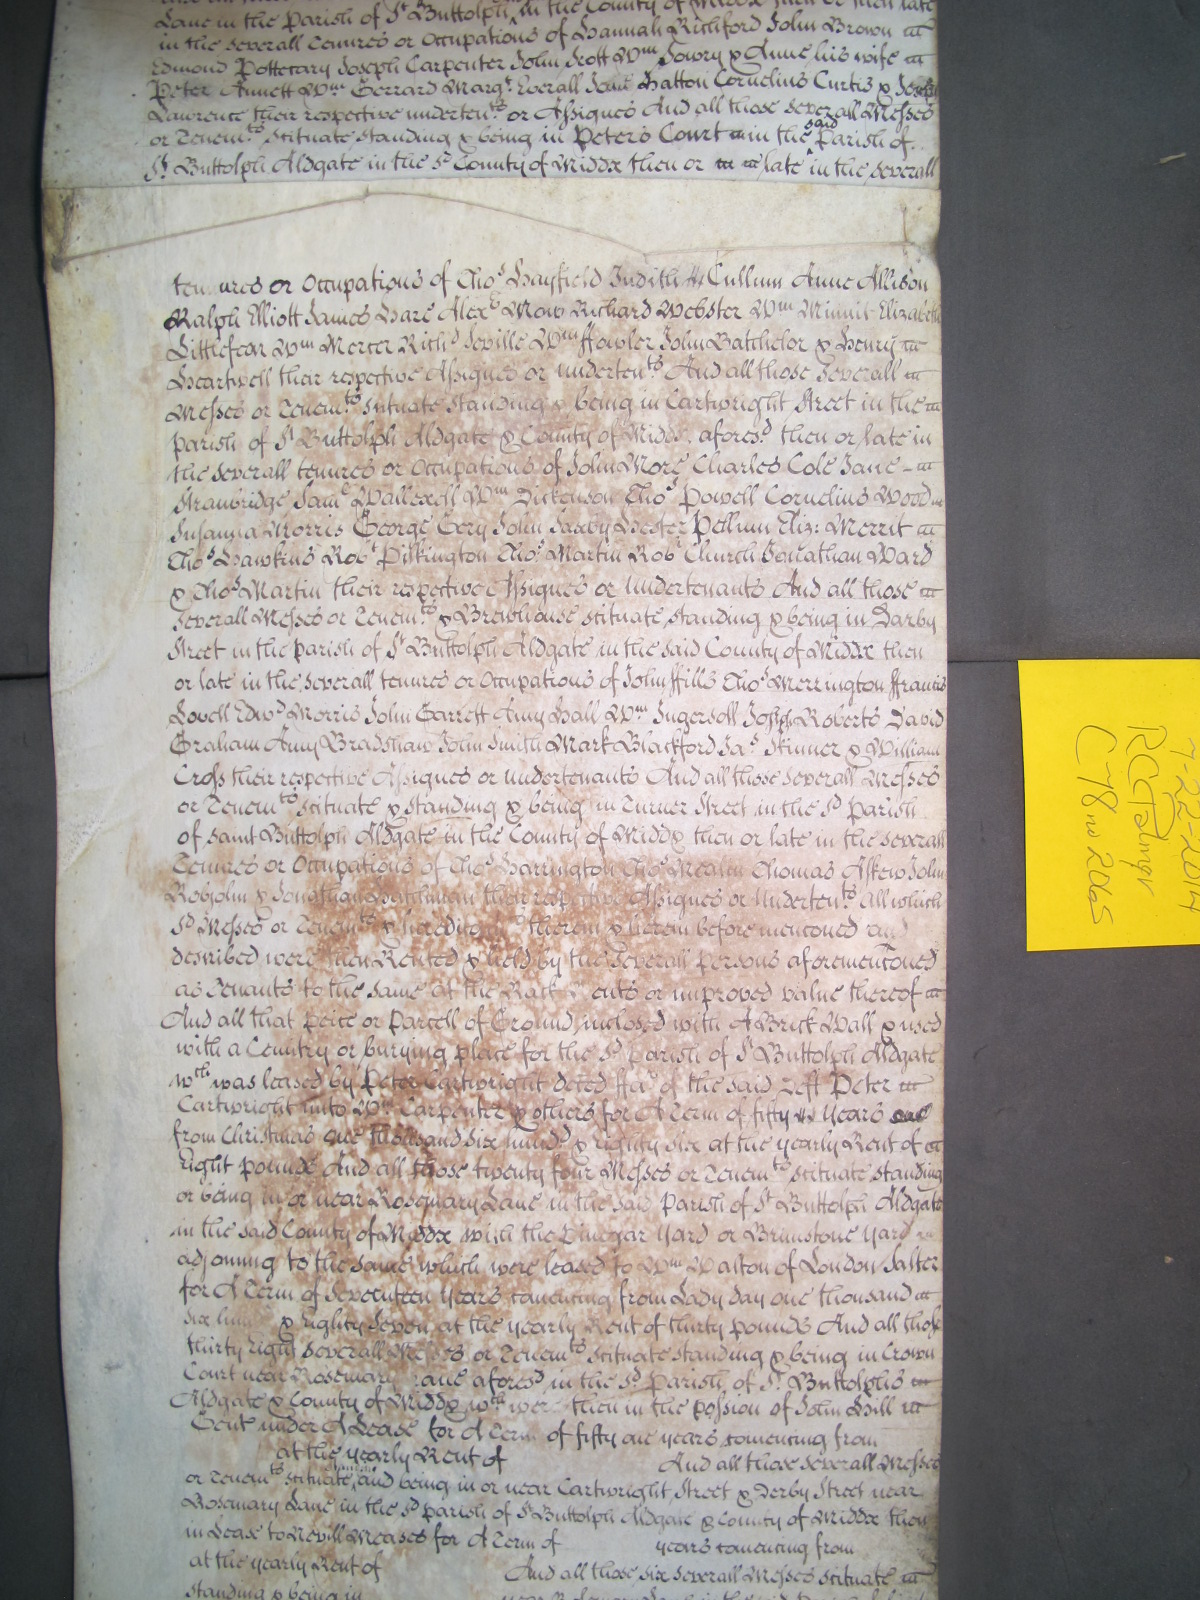 Lane in the Parish of St Buttolph in the County of Middx then or then late
in the severall tenures or Occupations of Hannah Richford John Brown
Edmond Pottecary Joseph Carpenter John Scott Wm Lowry & Anne his wife
Peter Annett Wm Gerrard Margt Everall John Hatton Cornelius Curtis & Joseph
Lawrence their respective undertents or Assignes And all those severall Messes
or Tenemts scituate standing & being in Peters Court in the said Parish of
St Buttolph Aldgate in the sd County of Middx then or late in the severall
tenures or Occupations of Thos Hayfield Judith Cullum Anne Allison
Ralph Elliott James Hare Alexr Mow Richard Webster Wm Minnis Elizabeth
Littlefear Wm Mercer Richd Seville Wm ffowler John Batchelor & Henry
Heartwell their respective Assignes or undertents And all those severall
Messes or Tenemts scituate standing & being in Cartwright Street in the
parish of St Buttolph Aldgate & County of Midds aforesd then or late in
the severall tenures or Occupations of John More Charles Cole Jane
Strawbridge Saml Wallexell Wm Dickenson Thos Powell Cornelius Wood
Susanna Morris George Cery John Saxby Hester Pellum Eliz: Merrit
Thos Hawkins Robt Pilkington Thos Martin Robt Church Jonathan Ward
& Thos Martin their respective Assignes or undertenants And all those
severall Messes or Tenemts & Brewhouse scituate standing & being in Darby
Street in the parish of St Buttolph Aldgate in the said County of Middx then
or late in the severall tenures or Occupations of John ffills Thos Merrington ffrancis
Lovell Edwd Morris John Garrett Amy Hall Wm Ingersoll Joseph Roberts David
Graham Amy Bradshaw John Smith Mark Blackford Jas Skinner & William
Cross their respective Assignes or undertenants And all those severall Messes
or Tenemts scituate & standing & being in Turner Street in the sd Parish
of saint Buttolph Aldgate in the County of Middx then or late in the severall
Tenures or Occupations of Thos Harrington Thos Meakin Thomas Askew John
Robjohn & Jonathan Hutchinson their respective Assignes or Undertents All which
sd Messes or Tenemts & hereditamts therein & herein before mentioned and
described were then Rented & held by the severall persons aforementioned
as Tenants to the same at the Rack Rents or improved value thereof
And all that peice or Parcell of Ground inclosed with A Brick Wall & used
with a Cemitry or burying place for the sd parish of St Buttolph Aldgate
wch was leased by Peter Cartwright deced ffar of the said Jeff Peter
Cartwright unto Wm Carpenter & others for A Term of fifty Years
from Christmas one thousand six hundd & eighty six at the yearly Rent of
Eight pounds And all those twenty four Messes or Tenemts scituate standing
or being in or near Rosemary Lane in the said Parish of St Buttolph Aldgate
in the said County of Middx with the Vinegar Yard or Brimstone Yard
adjoining to the same which were leased to Wm Waston of London Salter
for A Term of Seventeen Years comencing from Lady day one thousand
six hund & Eighty Seven at the yearly Rent of thirty pounds And all those
thirty Eight severall Messes or Tenemts scituate standing & being in Crown
Court near Rosemary Lane aforesd in the sd Parish of St Buttolphs
Aldgate & County of Middx wch were then in the possion of John Hill
Gent under A Lease for A Term of fifty one years comencing from
at the yearly Rent of And all those severall Messes
or tenemts scituate and being in or near Cartwright Street & Derby Street near
Rosemary Lane in the sd parish of St Buttolph Aldgate & County of Middx then
in Lease to Nevill Meases for A Term of years comencing from
at the yearly Rent of And all those six severall Messes scituate
standing & being in
7-22-2014
RCFalinge
C 78 no 2065